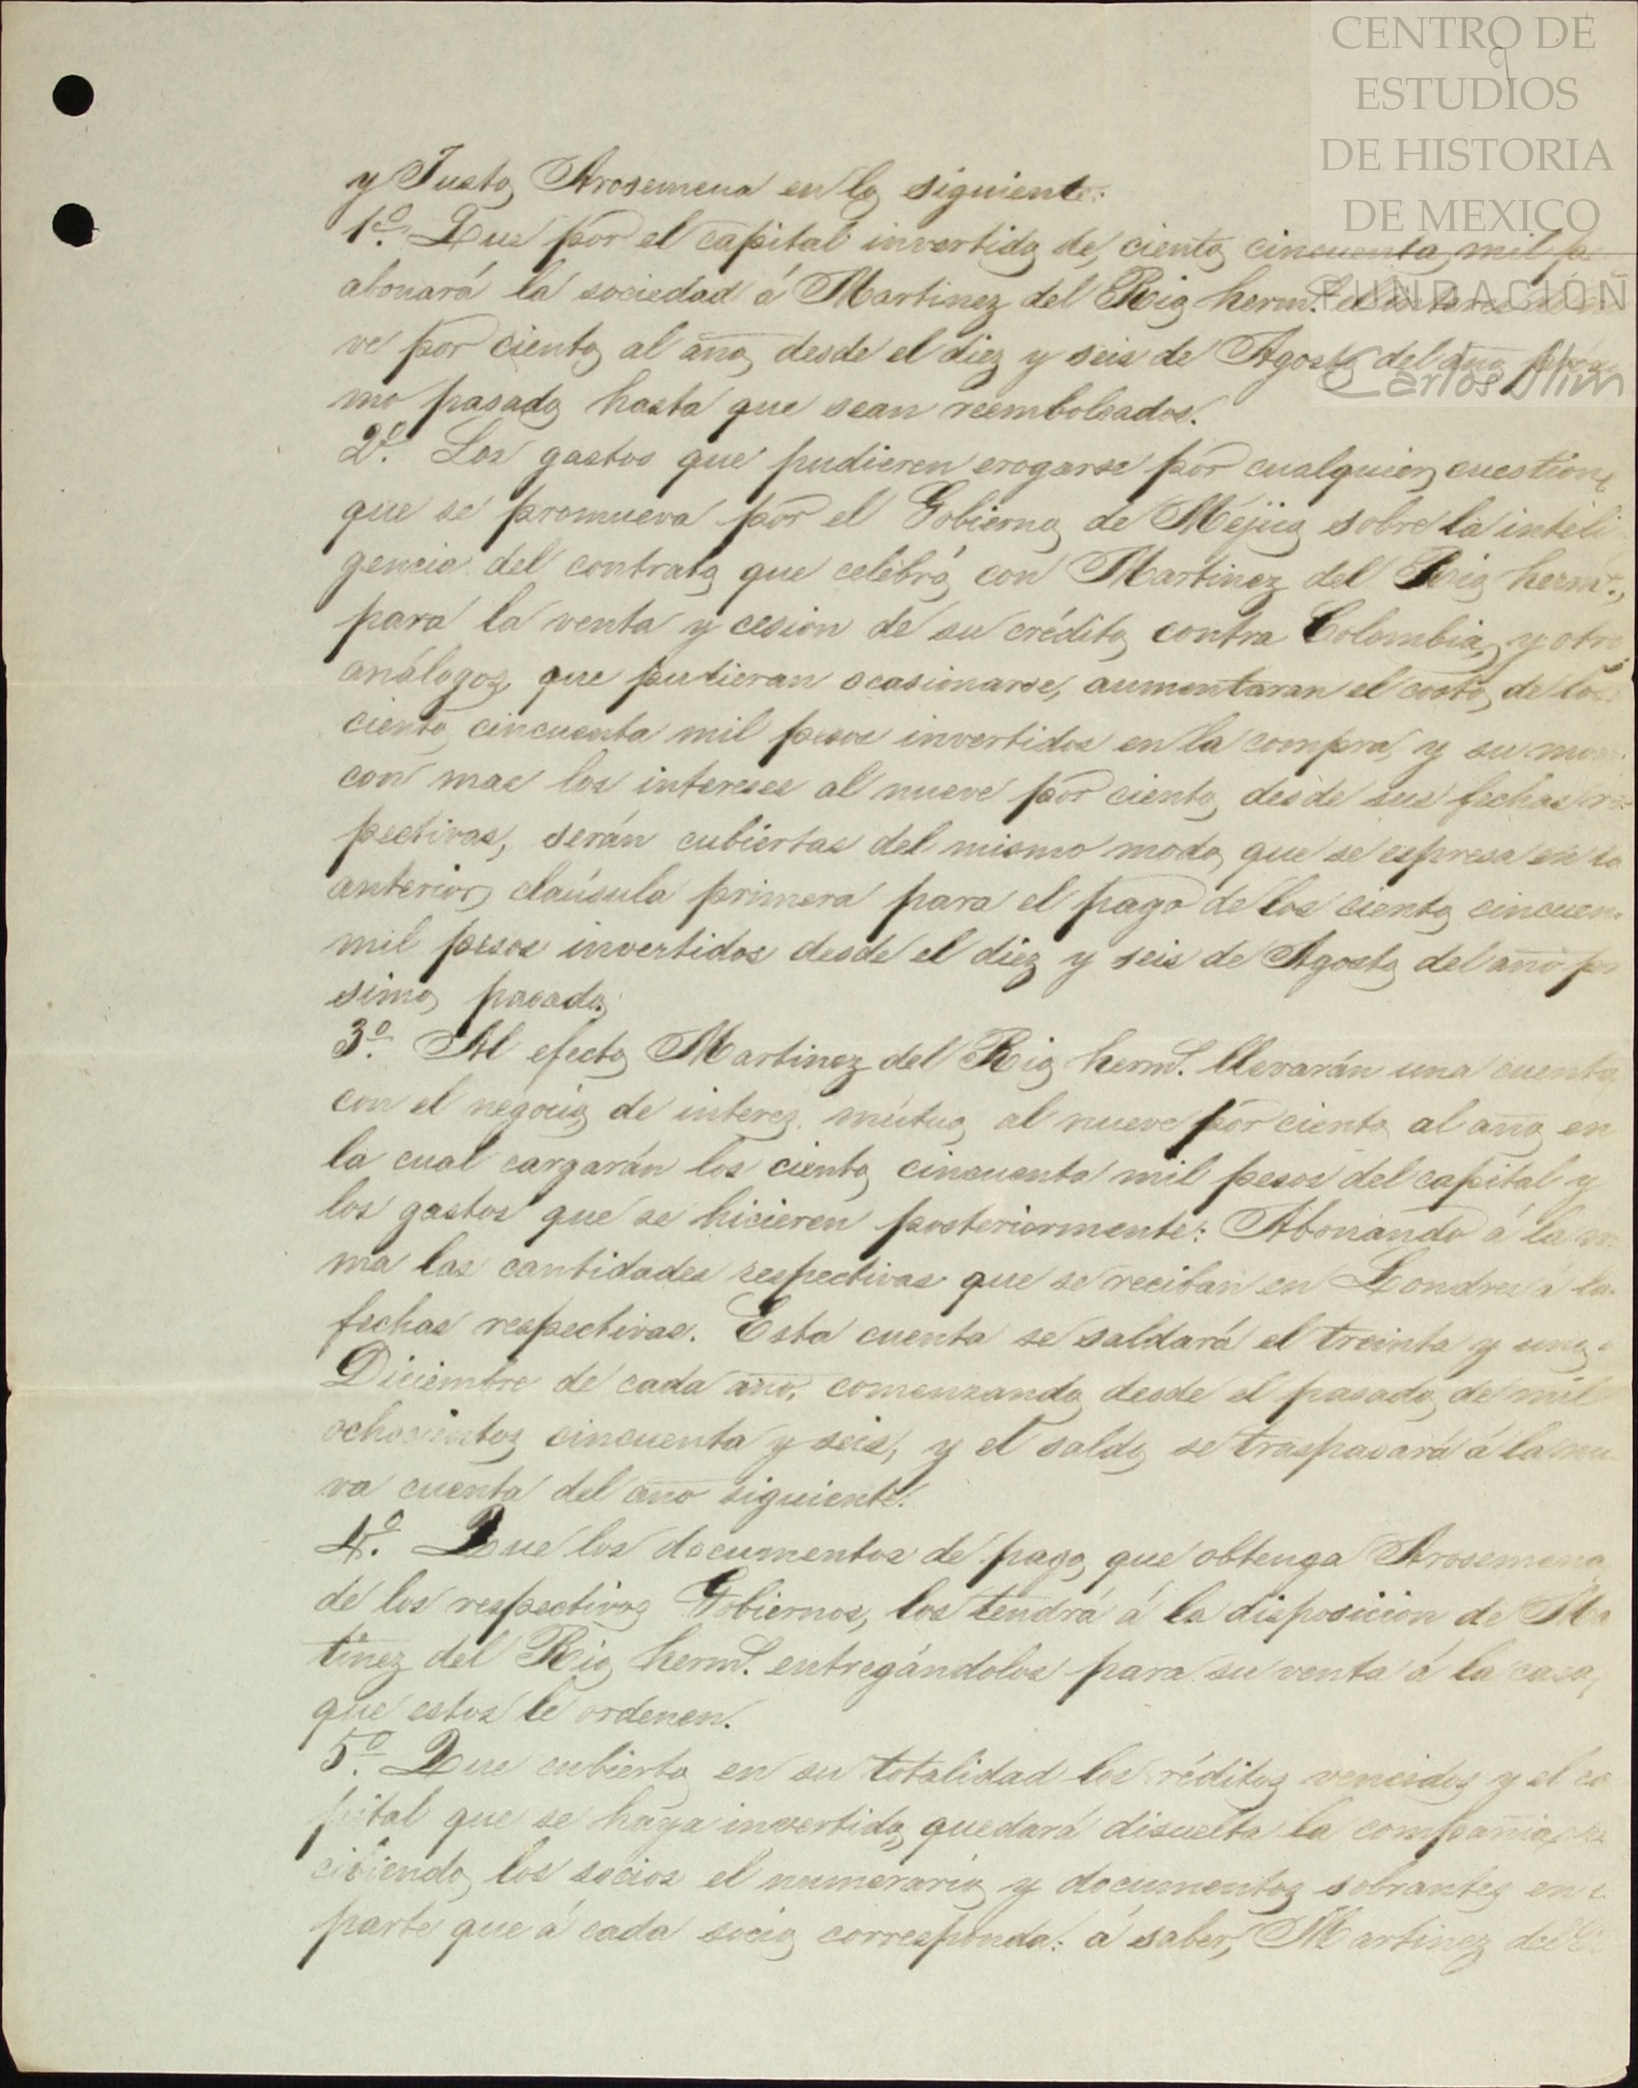 CENTRO DE
ESTUDIOS
DE HISTORIA
DE MEXICO
FUNDACIÓN
Carlos Slim
y Justo Arosemena en lo siguiente:
1º. Que por el capital invertido de ciento cincuenta mil p
abonará la sociedad á Martinez del Rio herms. el interes
ve por ciento al año, desde el diez y seis de Agosto del año
mo pasado hasta que sean reembolsados.
2º. Los gastos que pudieren erogarse por cualquier cuestion
que se promueva por el Gobierno de Mejico sobre la inteli
gencia del contrato que celebró con Martinez del Rio herms.,
para la venta y cesion de su crédito contra Colombia, y otro
análogos que pudieran ocasionarse, aumentaran el costo de los
ciento cincuenta mil pesos invertidos en la compra, y su
con mas los intereses al nueve por ciento desde sus fechas res
pectivas, serán cubiertas del mismo modo que se espresa en la
anterior claúsula primera para el pago de los ciento cincuen
mil pesos invertidos desde el diez y seis de Agosto del año
simo pasado.
3º. Al efecto Martinez del Rio herms. llevarán una cuenta
con el negocio de interes mútuo al nueve por ciento al año en
la cual cargarán los ciento cincuenta mil pesos del capital y
los gastos que se hicieren posteriormente: Abonando á la
ma las cantidades respectivas que se reciban en Londres a la
fechas respectivas. Esta cuenta se saldará el treinta y uno
Diciembre de cada año, comenzando desde el pasado de mil
ochocientos cincuenta y seis, y el saldo se traspasará á la nu
va cuenta del año siguiente.
4º. Que los documentos de pago que obtenga Arosemena
de los respectivos Gobiernos, los tendrá á la disposicion de Ma
tinez del Rio herms. entregándolos para su venta á la casa,
que estos le ordenen.
5º. Que cubierto en su totalidad los réditos vencidos y el ca
pital que se haya invertido, quedará disuelta la compañia, re
cibiendo los socios el numerario y documentos sobrantes en
parte que á cada socio corresponda: á saber, Martinez del